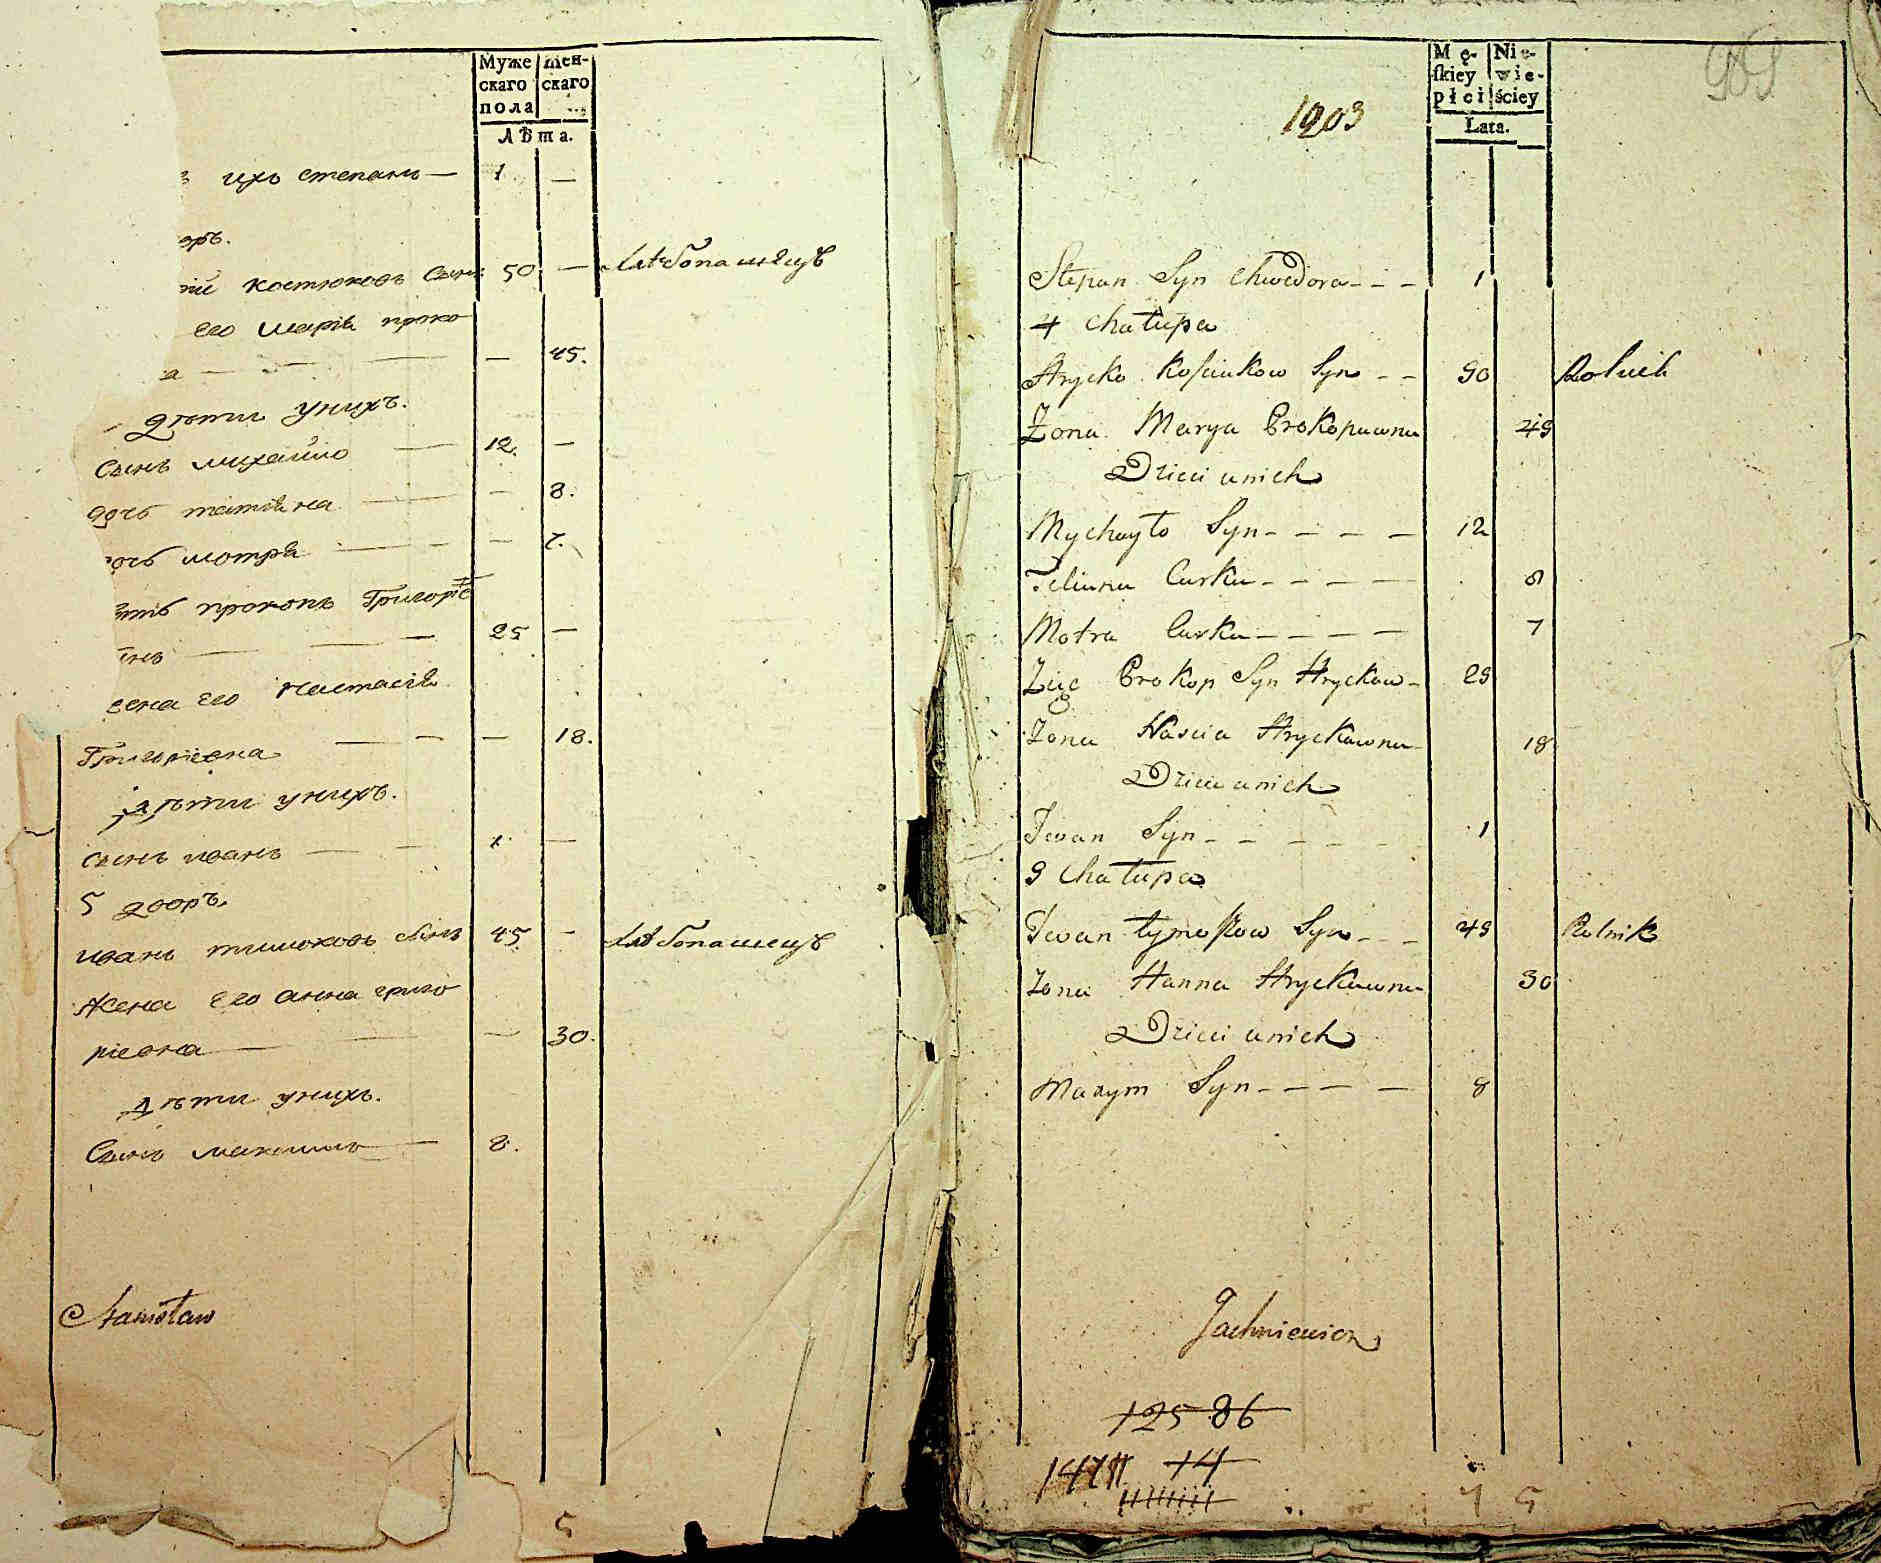 Муже
скаго
пола
Жен-
скаго
Лѣта.
ихъ степанъ — 1 —
костюковъ Сынъ 50. — хлѣбопашецъ
его мария проко
— 45.
дѣти унихъ.
Сынъ михайло — 12. —
дочь татіяна — — 8.
мотря — — 7.
прокопъ Григорїе
25 —
его настасія
Григорієвна — — 18.
дѣти унихъ.
сынъ иванъ — 1. —
5 дворъ.
иванъ тимоховъ сынъ 45. — хлѣбопашецъ
Жена его анна григо
рієвна — — 30.
дѣти унихъ.
Сынъ максимъ — 8.
Stanisław
5
Mę-
skiey
płci
Nie-
wie-
ściey
Lata.
1203
Stepan Syn Chwedora - - - 1
4 Chałupa
Hrycko Kościukow Syn - - 50 Rolnik
Żona Marya Prokopuwna 45
Dzieci unich
Mychayło Syn - - - - 12
Teliana Curka - - - - 8
Motra Curka - - - - 7
Zięć Prokop Syn Hryckow - 25
Zona Nascia Hryckuwna 18
Dzieci unich
Iwan Syn - - - - - 1
5 Chałupa
Iwan tymoszow Syn - - - 45 Rolnik
Zona Hanna Hryckuwna 30
Dzieci unich
Maxym Syn - - - - 8
Jachniewicz
125 86
14
7 5